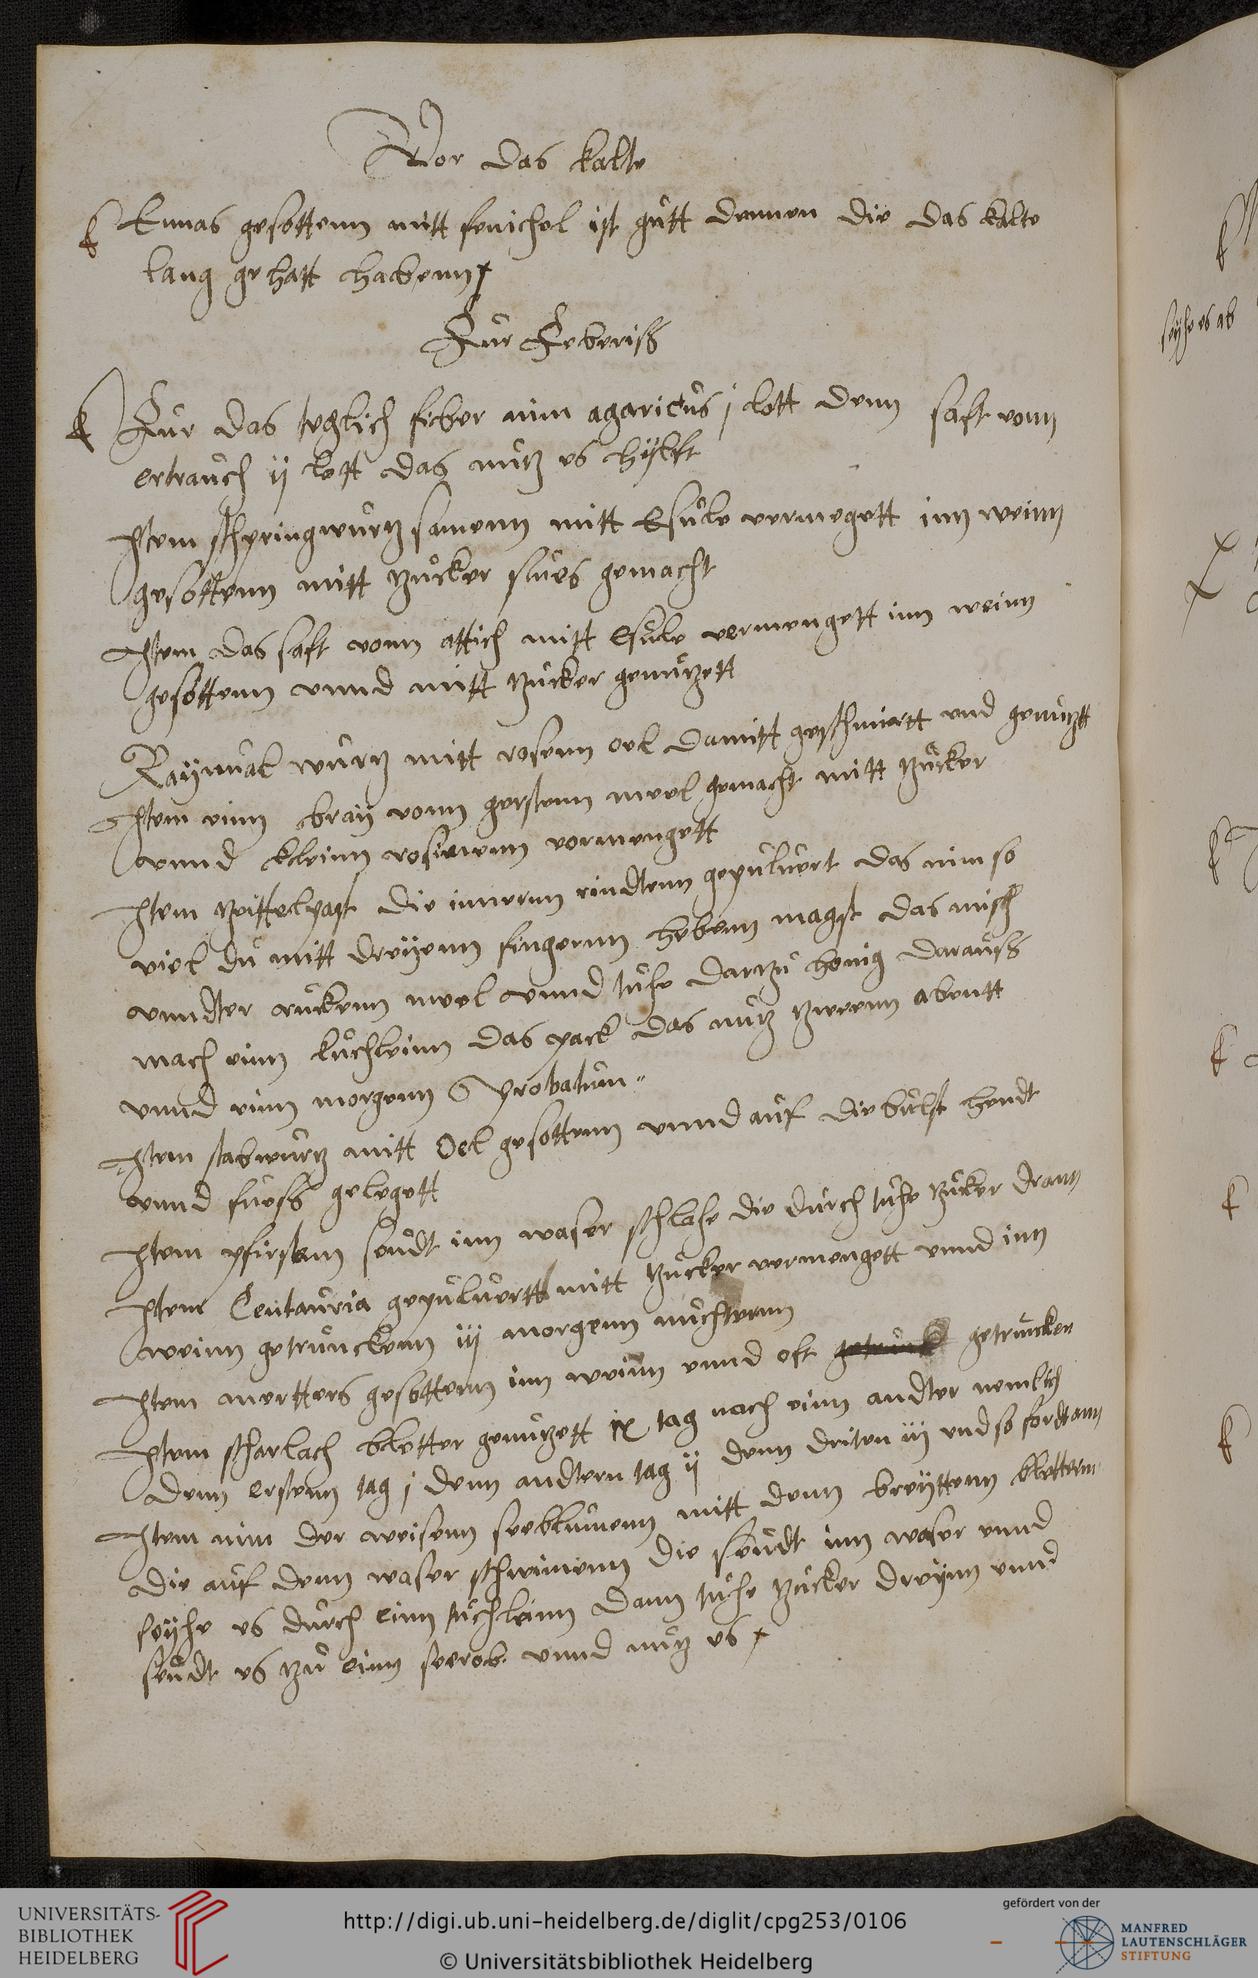 Vor das kalte
Ennas gesottenn mitt fenichel ist gůtt dennen die das kalte
lang gehatt habenn
Fůr Feberiß
Fůr das teglich fieber nim agaricůs j lott denn saft vonn
ertraůch ij lott das nůtz es hylfft
Item sphringwůrtz samenn mitt Esůle vermegett inn weinn
gesottenn mitt zůcker sůes gemacht
Item das saft vonn attich mitt Esůle vermengett inn weinn
gesottenn vnnd mitt zůcker genůtzett
wůrtz mitt rosenn oel damitt geschmiertt vnd genůtzt
Item einn bray vonn gerstenn meel gemacht mitt zůcker
vnnd kleinn rosienenn vormengett
Item die innernn rindtenn gepůluert das nim so
viel dů mitt dreyenn fingernn hebenn magst das misch
vnndter růckenn meel vnnd tůhe dartzů honig daraůß
mach einn kůchleinn das pack das nůtz zweenn abentt
vnnd einn morgenn Probatům
Item stabwůrtz mitt Oel gesottenn vnnd aůf die půlst hendt
vnnd fůeß gelegett
Item pfirstenn seůdt inn waser schlahe die důrch tůhe zůcker drann
Item Centaůria gepůluertt mitt zůcker vermengett vnnd inn
weinn getrůnckenn iij morgenn nůchternn
Item gesottenn inn weinn vnnd oft getrůncken
Item scharlach bletter genůtzett ix tag nach einn andter nemlich
denn erstenn tag j denn andtern tag ij denn driten iij vnd so fordt ann
Item nim der weisenn seeblůmenn mitt denn breyttenn blettern
die aůf denn waser schwimenn die seůdt inn waser vnnd
seyhe es důrch einn tůchleinn dann tůhe zůcker dreynn vnnd
seůdt es zů einn seerob vnnd nůtz es
seyhe es ab
UNIVERSITÄTS-
BIBLIOTHEK
HEIDELBERG
http://digi.ub.uni-heidelberg.de/diglit/cpg253/0106
© Universitätsbibliothek Heidelberg
gefördert von der
MANFRED
LAUTENSCHLÄGER
STIFTUNG